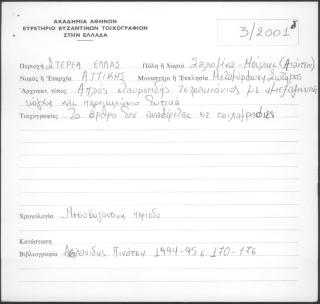 ΑΚΑΔΗΜΙΑ ΑΘΗΝΩΝ
ΕΥΡΕΤΗΡΙΟ ΒΥΖΑΝΤΙΝΩΝ ΤΟΙΧΟΓΡΑΦΙΩΝ
ΣΤΗΝ ΕΛΛΑΔΑ
3/2001
Περιοχή ΣΤΕΡΕΑ ΕΛΛΑΣ Πόλη ή Χωριό Σαλαμίνα-
Νομός ή Ἐπαρχία ΑΤΤΙΚΗΣ Μοναστήρι ή Ἐκκλησία Μεταμόρφωση Σωτήρος
Ἀρχιτεκτ. τύπος Απλός σταυροειδής τετρακιόνιος με
νάρθηκα και παρεκκλήσιο δυτικά
Τοιχογραφίες Το άρθρο δεν αναφέρεται σε τοιχογραφίες
Χρονολογία Μεσοβυζαντινή περίοδο
Κατάσταση
Βιβλιογραφία Πινάτση 1994-95 σ. 170-176